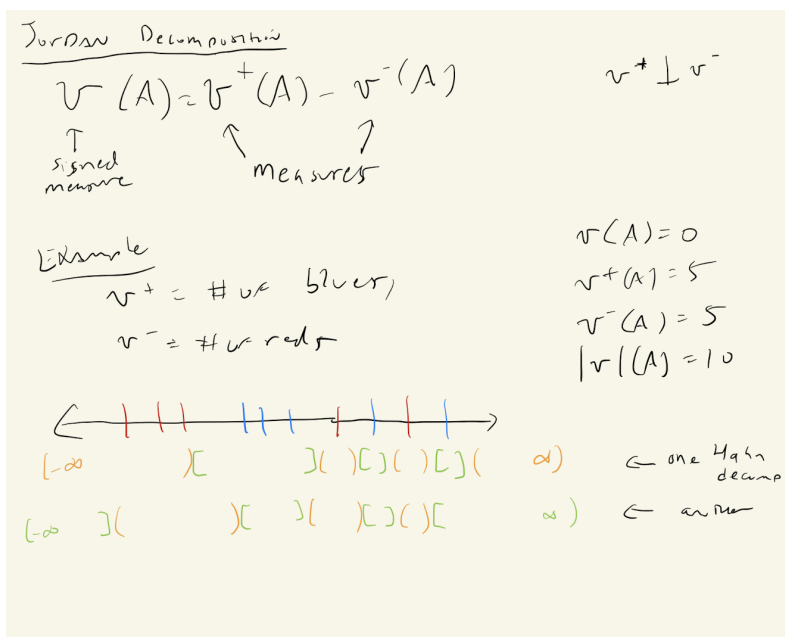 Jordan Decomposition
v(A) = v⁺(A) - v⁻(A)
v⁺ ⊥ v⁻
↑ ↖ ↗
signed measure
measures
Example
v⁺ = # of blues,
v⁻ = # of reds
v(A) = 0
v⁺(A) = 5
v⁻(A) = 5
|v|(A) = 10
[-∞ )[ ]( )[ ]( )[ ]( ∞) ← one Hahn decomp
[-∞ ]( )[ ]( )[ ]( )[ ∞) ← another